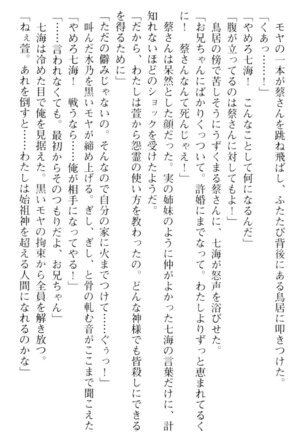 モヤの一本が蔡さんを跳ね飛ばし、ふたたび背後にある鳥居に叩きつけた。
「くあっ……！」
「やめろ七海！　こんなことして何になるんだ」
「腹が立ってるのは蔡さんに対してもよ！」
鳥居の傍で苦しそうにうずくまる蔡さんに、七海が怒声を浴びせた。
「お兄ちゃんにばかりくっついて。許婚にまでなって。わたしよりずっと恵まれてるくせに！　蔡さんなんて死んじゃえ！」
蔡さんは呆然とした顔だった。実の姉妹のように仲がよかった七海の言葉だけに、計り知れないほどのショックを受けたようだ。
「だから、わたしは萱から怨霊の使い方を教わったの。どんな神様でも皆殺しにできる力を得るために」
「ただの僻みじゃないの。そんなので自分の家に火までつけて――ぐぅっ！」
叫んだ水乃を黒いモヤが締め上げる。ぎし、ぎし、と骨の軋む音がここまで聞こえた。
「やめろ七海！　戦うなら……俺が相手になってやる！」
「……言われなくても。最初からそのつもりだよ、お兄ちゃん」
七海は冷めた目で俺を見据えた。黒いモヤの拘束から全員を解き放つ。
「ねぇ萱。あれを倒すと――わたしは始祖神を超える人間になれるのかな」